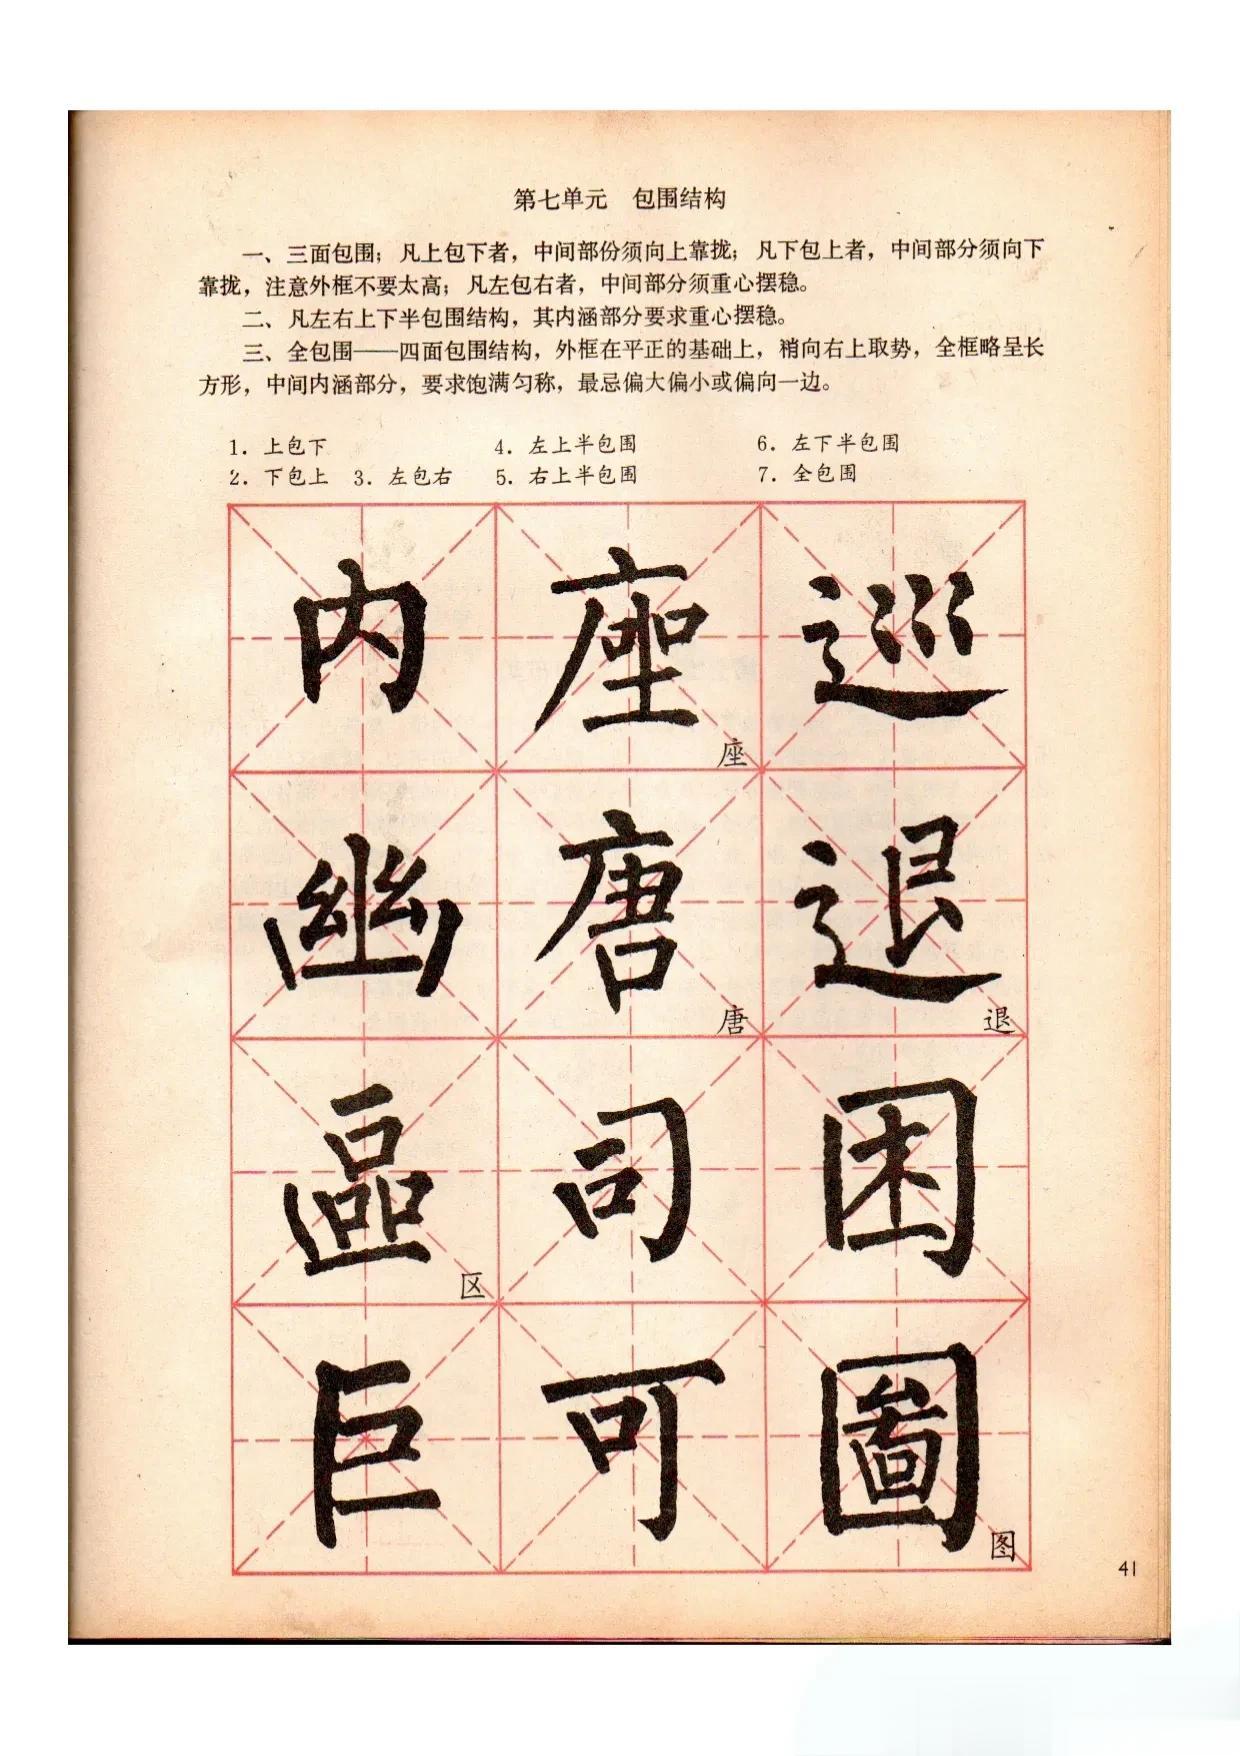 第七单元　包围结构
一、三面包围；凡上包下者，中间部份须向上靠拢；凡下包上者，中间部分须向下
靠拢，注意外框不要太高；凡左包右者，中间部分须重心摆稳。
二、凡左右上下半包围结构，其内涵部分要求重心摆稳。
三、全包围——四面包围结构，外框在平正的基础上，稍向右上取势，全框略呈长
方形，中间内涵部分，要求饱满匀称，最忌偏大偏小或偏向一边。
1. 上包下　4. 左上半包围　6. 左下半包围
2. 下包上　3. 左包右　5. 右上半包围　7. 全包围
内 座 巡
座
幽 唐 退
唐 退
區 司 困
区
巨 可 圖
图
41